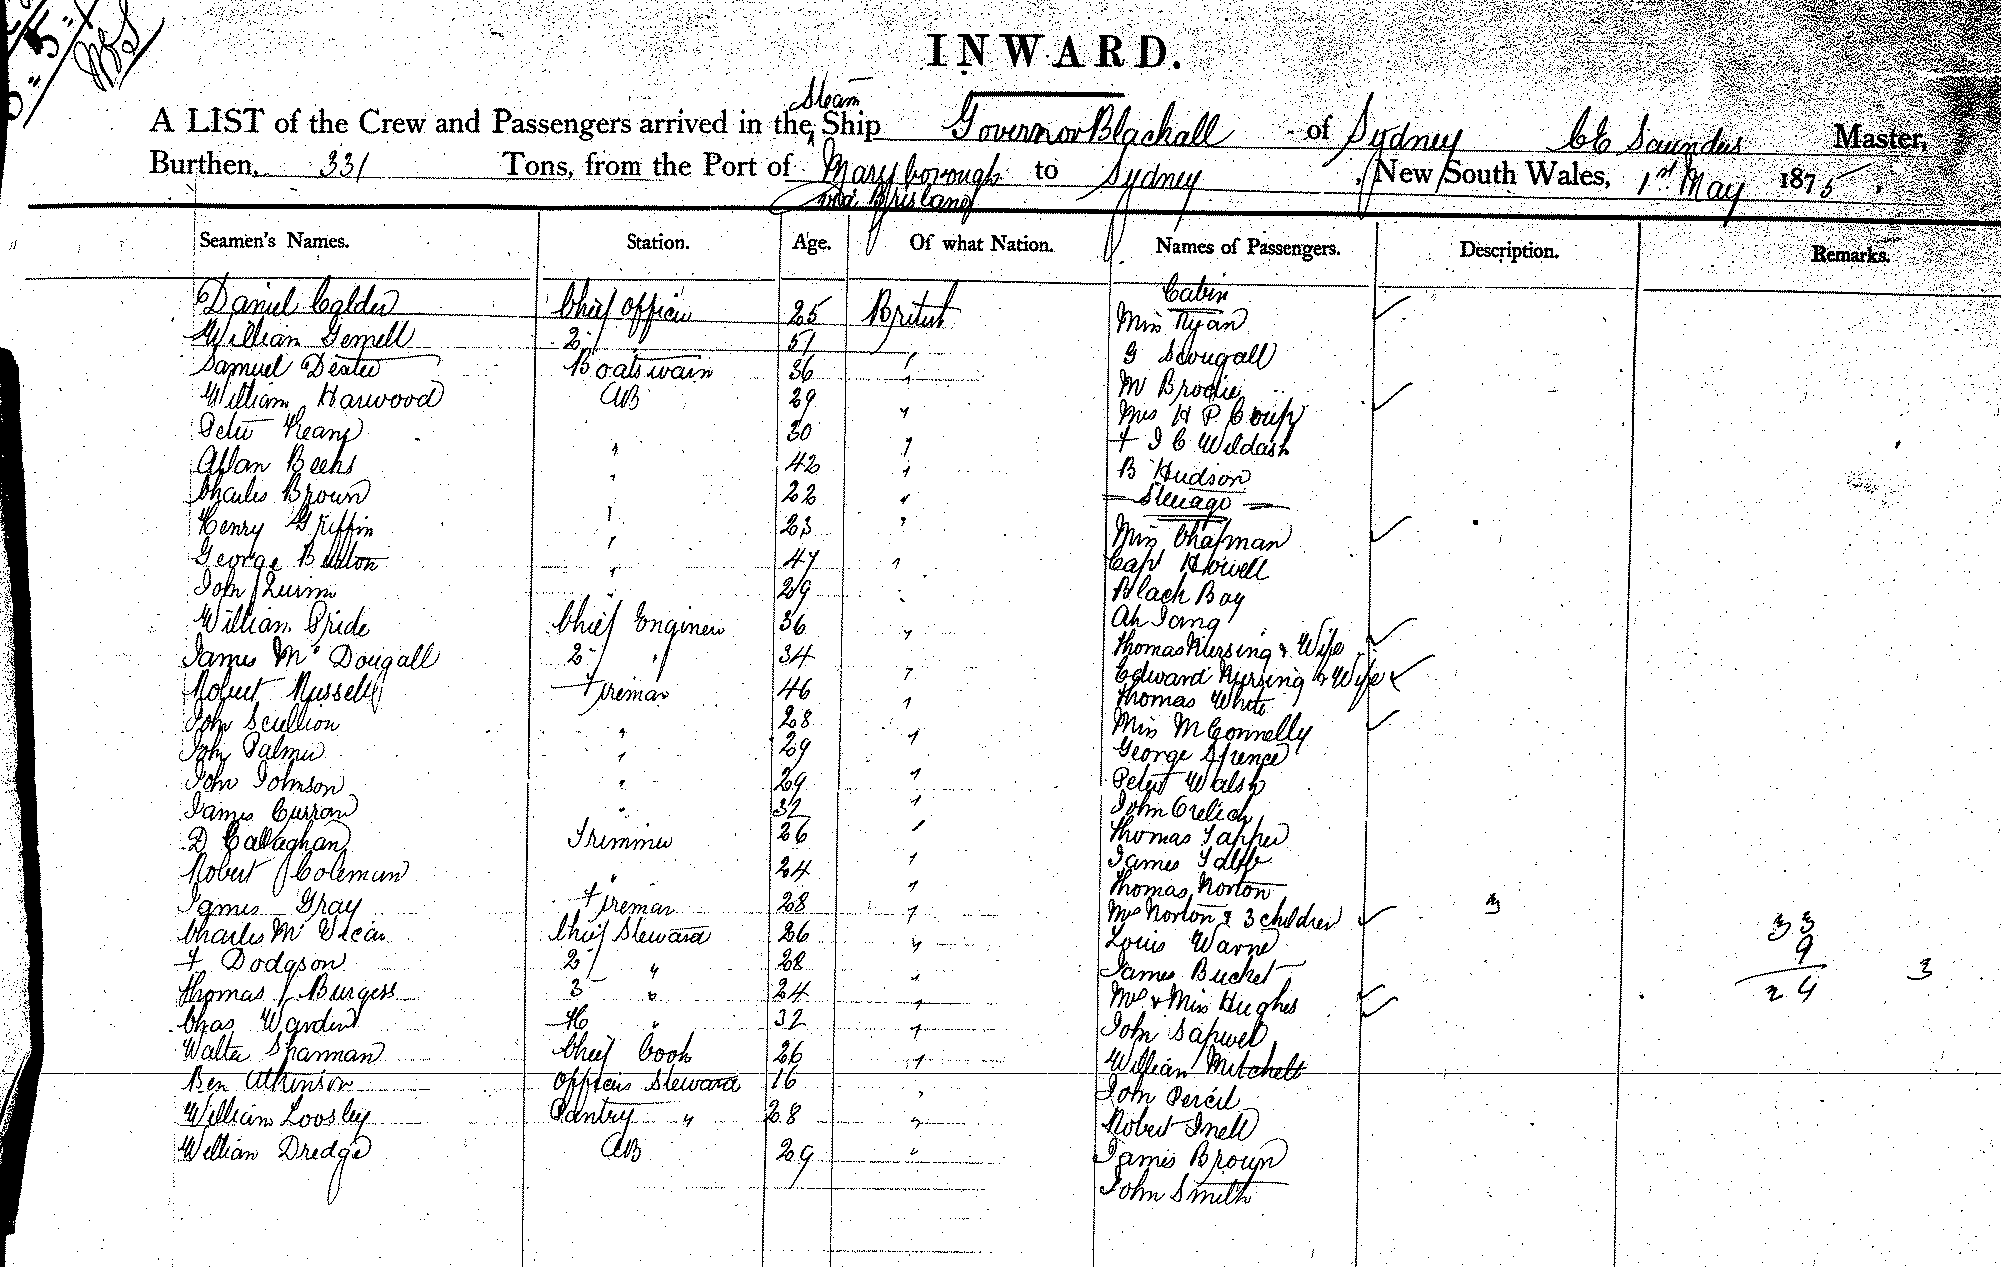 INWARD.
A LIST of the Crew and Passengers arrived in the Steam Ship Governor Blackall of Sydney CE Saunders Master,
Burthen, 331 Tons, from the Port of Maryborough to Sydney New South Wales, 1st May 1875
via Brisbane
Seamen's Names. Station. Age. Of what Nation. Names of Passengers. Description. Remarks.
Cabin
Daniel Calder Chief Officer 25 British Miss Ryan
William Gemell 2 " 51 " G Scougall
Samuel Dexter Boatswain 36 " Mr Brodie
William Harwood AB 29 " Mrs H P Coup
Peter Keany " 30 " F I C Wildash
Allan Beeks " 42 " B Hudson
Charles Brown " 22 " Steerage
Henry Griffin " 23 " Miss Chapman
George Burton " 47 " Capt Howell
John Quinn " 29 " Black Boy
William Pride Chief Engineer 36 " Ah Tong
James Mc Dougall 2 " 34 " Thomas Kersing & Wife
Robert Russell Fireman 46 " Edward Kersing & Wife
Thomas White
John Scullion " 28 " Miss McConnelly
John Palmer " 29 " George Spence
John Johnson " 29 " Peter Walsh
James Curran " 32 " John Crelich
D Callaghan Trimmer 26 " Thomas Tapper
Robert Coleman " 24 " James
Thomas Norton
James Gray Fireman 28 " Mrs Norton & 3 children 3 33
Charles Mc Vicar Chief Steward 26 " Louis Warne 9
F Dodgson 2 " 28 " James Bucket 24 3
Thomas J Burgess 3 " 24 " Mrs & Miss Hughes
Chas Warden " 32 " John Sapwel
Walter Spanman Chief Cook 26 " William Mitchell
Ben Atkinson Officers Steward 16 " John Percil
William Loosley Pantry " 28 " Robert Snell
William Dredge AB 29 " James Brown
John Smith